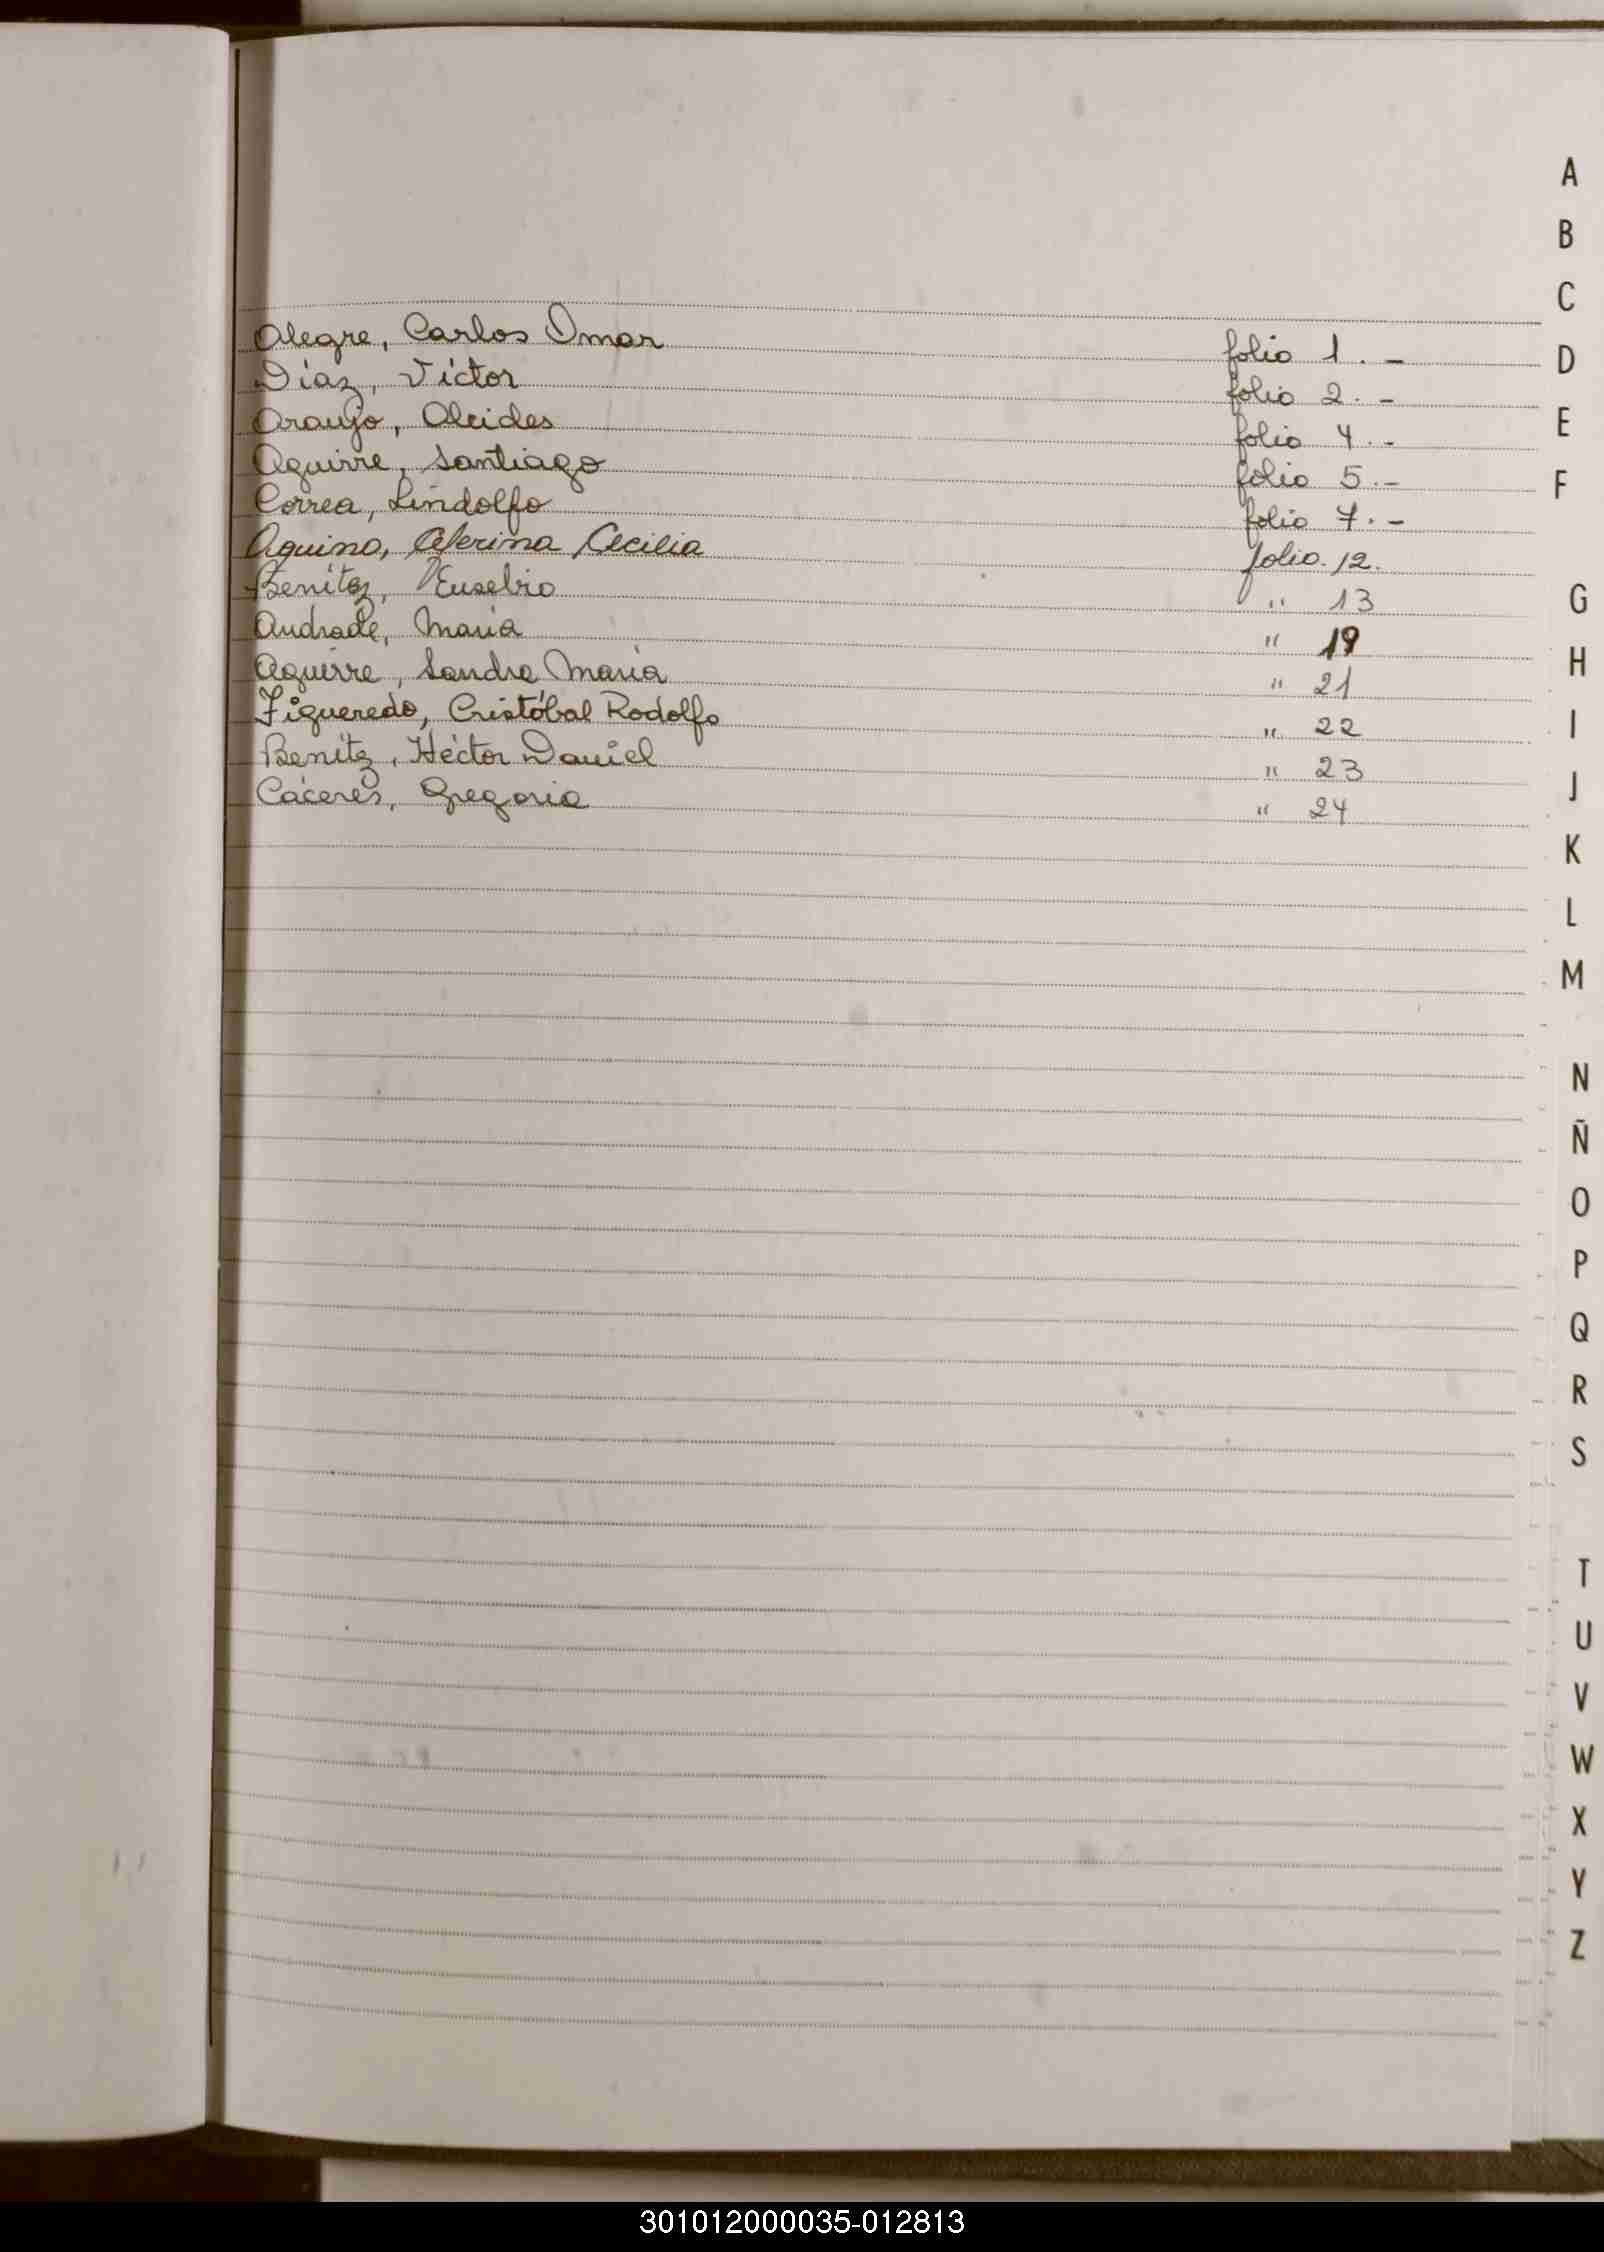 Alegre, Carlos Omar folio 1.-
Díaz, Víctor folio 2.-
Araujo, Alcides folio 4.-
Aguirre, Santiago folio 5.-
Correa, Lindolfo folio 7.-
Aquino, Cecilia folio. 12.
Benítez, Eusebio " 13
Andrade, María " 19
Aguirre, Sandra María " 21
Figueredo, Cristóbal Rodolfo " 22
Benítez, Héctor Daniel " 23
Cáceres, Gregoria " 24
A
B
C
D
E
F
G
H
I
J
K
L
M
N
Ñ
O
P
Q
R
S
T
U
V
W
X
Y
Z
301012000035-012813